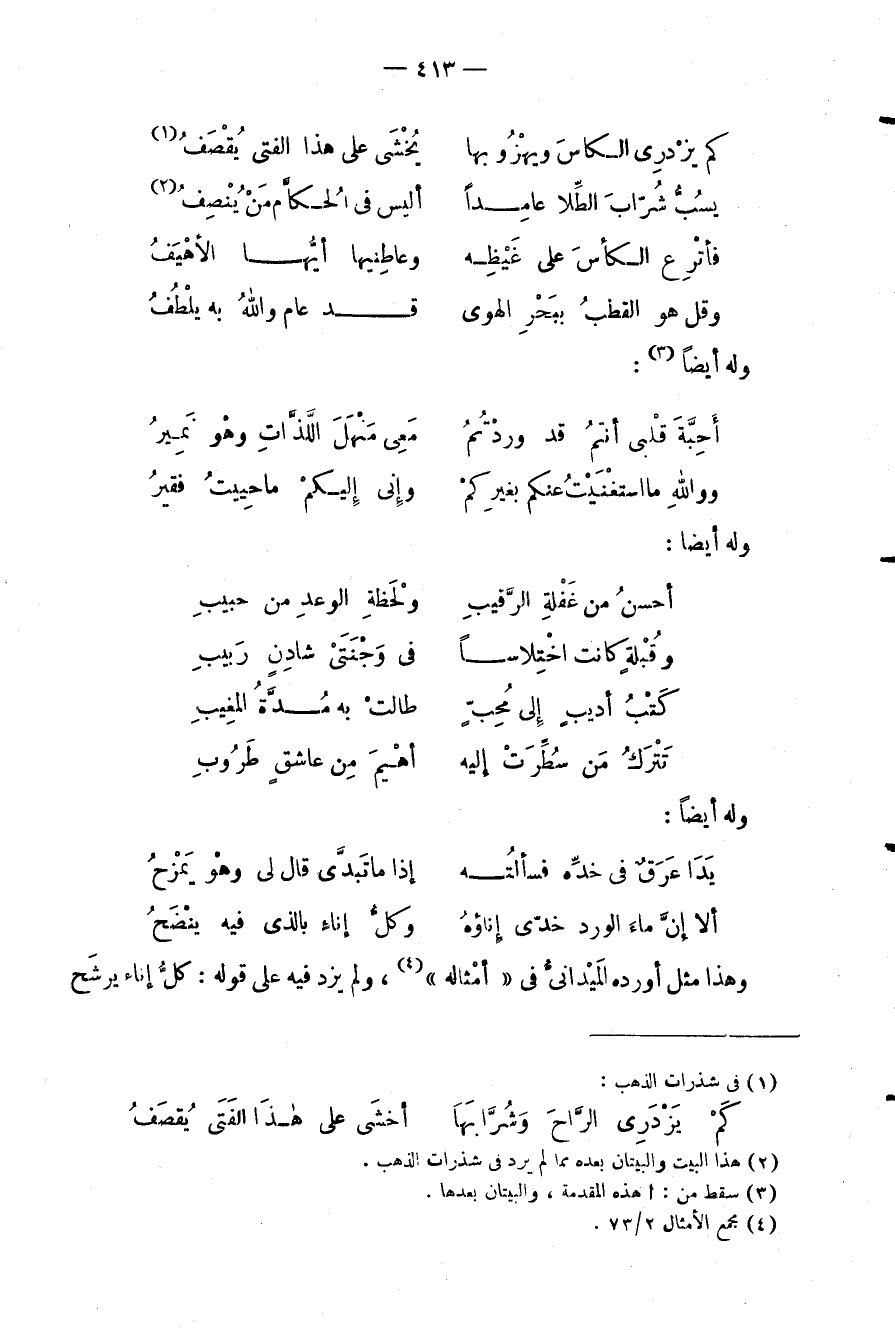 — ٤١٣ —
كم يزْدرِى الـكاسَ ويهزُو بها يُخْشَى على هذا الفتى يُقْصَفُ(١)
يسُبُّ شُرّابَ الطِّلا عامِـــداً أليس فى الحـكاَّم مَنْ يُنْصِفُ(٢)
فأتْرِع الـكأسَ على غَيْظِـه وعاطِنيها أيُّهـــا الأهْيَفُ
وقل هو القطبُ ببَحْرِ الهوى قـــد عام واللهُ به يلْطُفُ
وله أيضاً (٣) :
أَحِبَّةَ قلْبى أنتمُ قد وردْتُمُ مَعِى مَنْهَلَ اللَّذَّاتِ وهْو نَمِيرُ
ووالله ما استغْنَيْتُ عنكم بغيرِكمْ وإنى إليـكمْ ماحييتُ فقيرُ
وله أيضا :
أحسنُ من غَفْلةِ الرَّقيبِ ولَحْظةِ الوعدِ من حبيبِ
وقُبْلةٍ كانت اخْتِلاســاً فى وَجْنَتَىْ شادِنٍ رَبيبِ
كَتْبُ أديبٍ إلى مُحِبّ طالتْ به مُـــدَّةُ المغِيبِ
تَتْرَكُ مَن سُطِّرَتْ إليه أهْيمَ مِن عاشقٍ طَرُوبِ
وله أيضاً :
بَدَا عَرَقٌ فى خدِّه فسألتُـــه إذا ماتَبدَّى قال لى وهْو يَمْزحُ
ألا إنَّ ماءَ الورد خدّى إناؤهُ وكلُّ إناء بالذى فيه ينْضَحُ
وهذا مثل أورده المَيْدانىُّ فى « أمْثاله »(٤) ، ولم يزد فيه على قوله : كلُّ إناء يرشَح
(١) فى شذرات الذهب :
كَمْ يَزْدَرِى الرَّاحَ وَشُرَّابَهَا أخشَى على هٰـذَا الفَتَى يُقصَفُ
(٢) هذا البيت والبيتان بعده مما لم يرد فى شذرات الذهب .
(٣) سقط من : ا هذه المقدمة ، والبيتان بعدها .
(٤) مجمع الأمثال ٧٣/٢ .